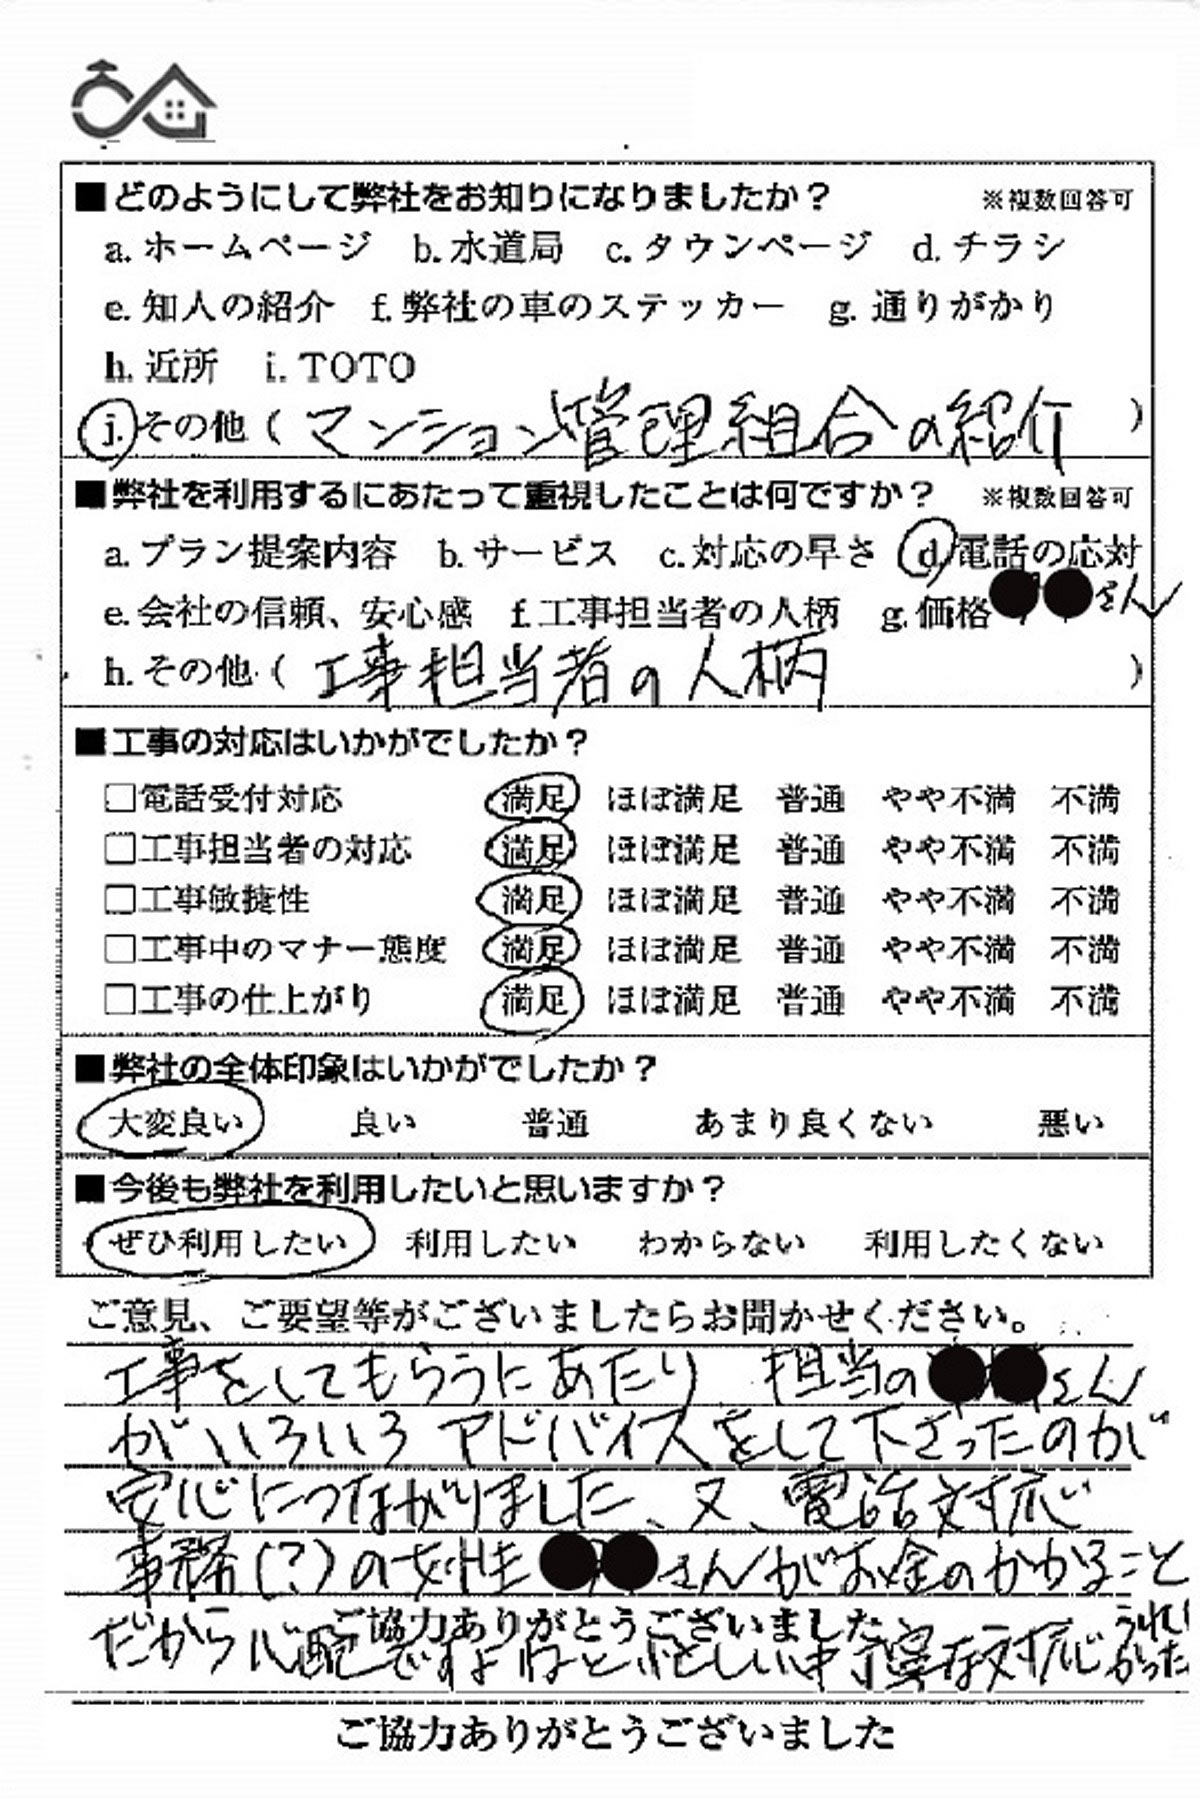 ■どのようにして弊社をお知りになりましたか？ ※複数回答可
a. ホームページ b. 水道局 c. タウンページ d. チラシ
e. 知人の紹介 f. 弊社の車のステッカー g. 通りがかり
h. 近所 i. TOTO
j. その他（ マンション管理組合の紹介 ）
■弊社を利用するにあたって重視したことは何ですか？ ※複数回答可
a. プラン提案内容 b. サービス c. 対応の早さ d. 電話の応対
e. 会社の信頼、安心感 f. 工事担当者の人柄 g. 価格 さん
h. その他（ 工事担当者の人柄 ）
■工事の対応はいかがでしたか？
□電話受付対応 満足 ほぼ満足 普通 やや不満 不満
□工事担当者の対応 満足 ほぼ満足 普通 やや不満 不満
□工事敏捷性 満足 ほぼ満足 普通 やや不満 不満
□工事中のマナー態度 満足 ほぼ満足 普通 やや不満 不満
□工事の仕上がり 満足 ほぼ満足 普通 やや不満 不満
■弊社の全体印象はいかがでしたか？
大変良い 良い 普通 あまり良くない 悪い
■今後も弊社を利用したいと思いますか？
ぜひ利用したい 利用したい わからない 利用したくない
ご意見、ご要望等がございましたらお聞かせください。
工事をしてもらうにあたり 担当の さん
がいろいろアドバイスをして下さったのが
安心につながりました、又、電話対応
事務(?)の女性 さんがお金のかかること
ご協力ありがとうございました
だから心配ですよねと、忙しい中丁寧な対応うれしかった
ご協力ありがとうございました